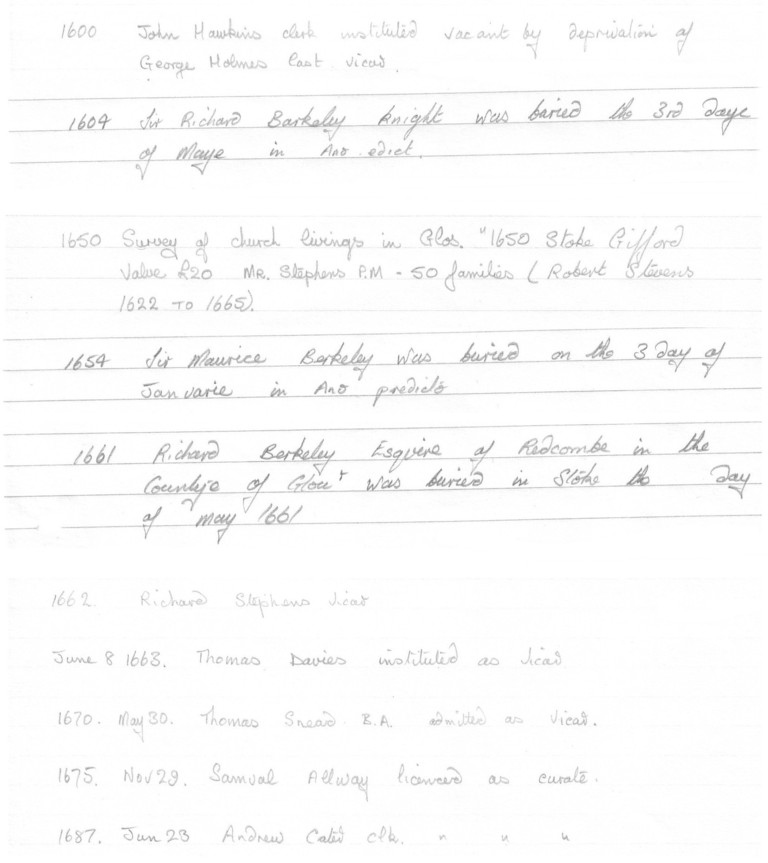 1600 John Hawkins clerk instituted vacant by deprivation of
George Holmes last vicar.
1604 Sir Richard Barkeley Knight was buried the 3rd daye
of Maye in Ano edict.
1650 Survey of church livings in Glos. "1650 Stoke Gifford
Value £20 MR. Stephens P.M - 50 families ( Robert Stevens
1622 TO 1665).
1654 Sir Maurice Berkeley was buried on the 3 day of
Januarie in Ano predicto
1661 Richard Berkeley Esquire of Redcombe in the
Countye of Glour was buried in Stoke the day
of may 1661
1662. Richard Stephens Vicar
June 8 1663. Thomas Davies instituted as vicar
1670. May 30. Thomas Snead B.A. admitted as Vicar.
1675. Nov 29. Samual Allway licenced as curate.
1687. Jun 23 Andrew Cater clk. " " "